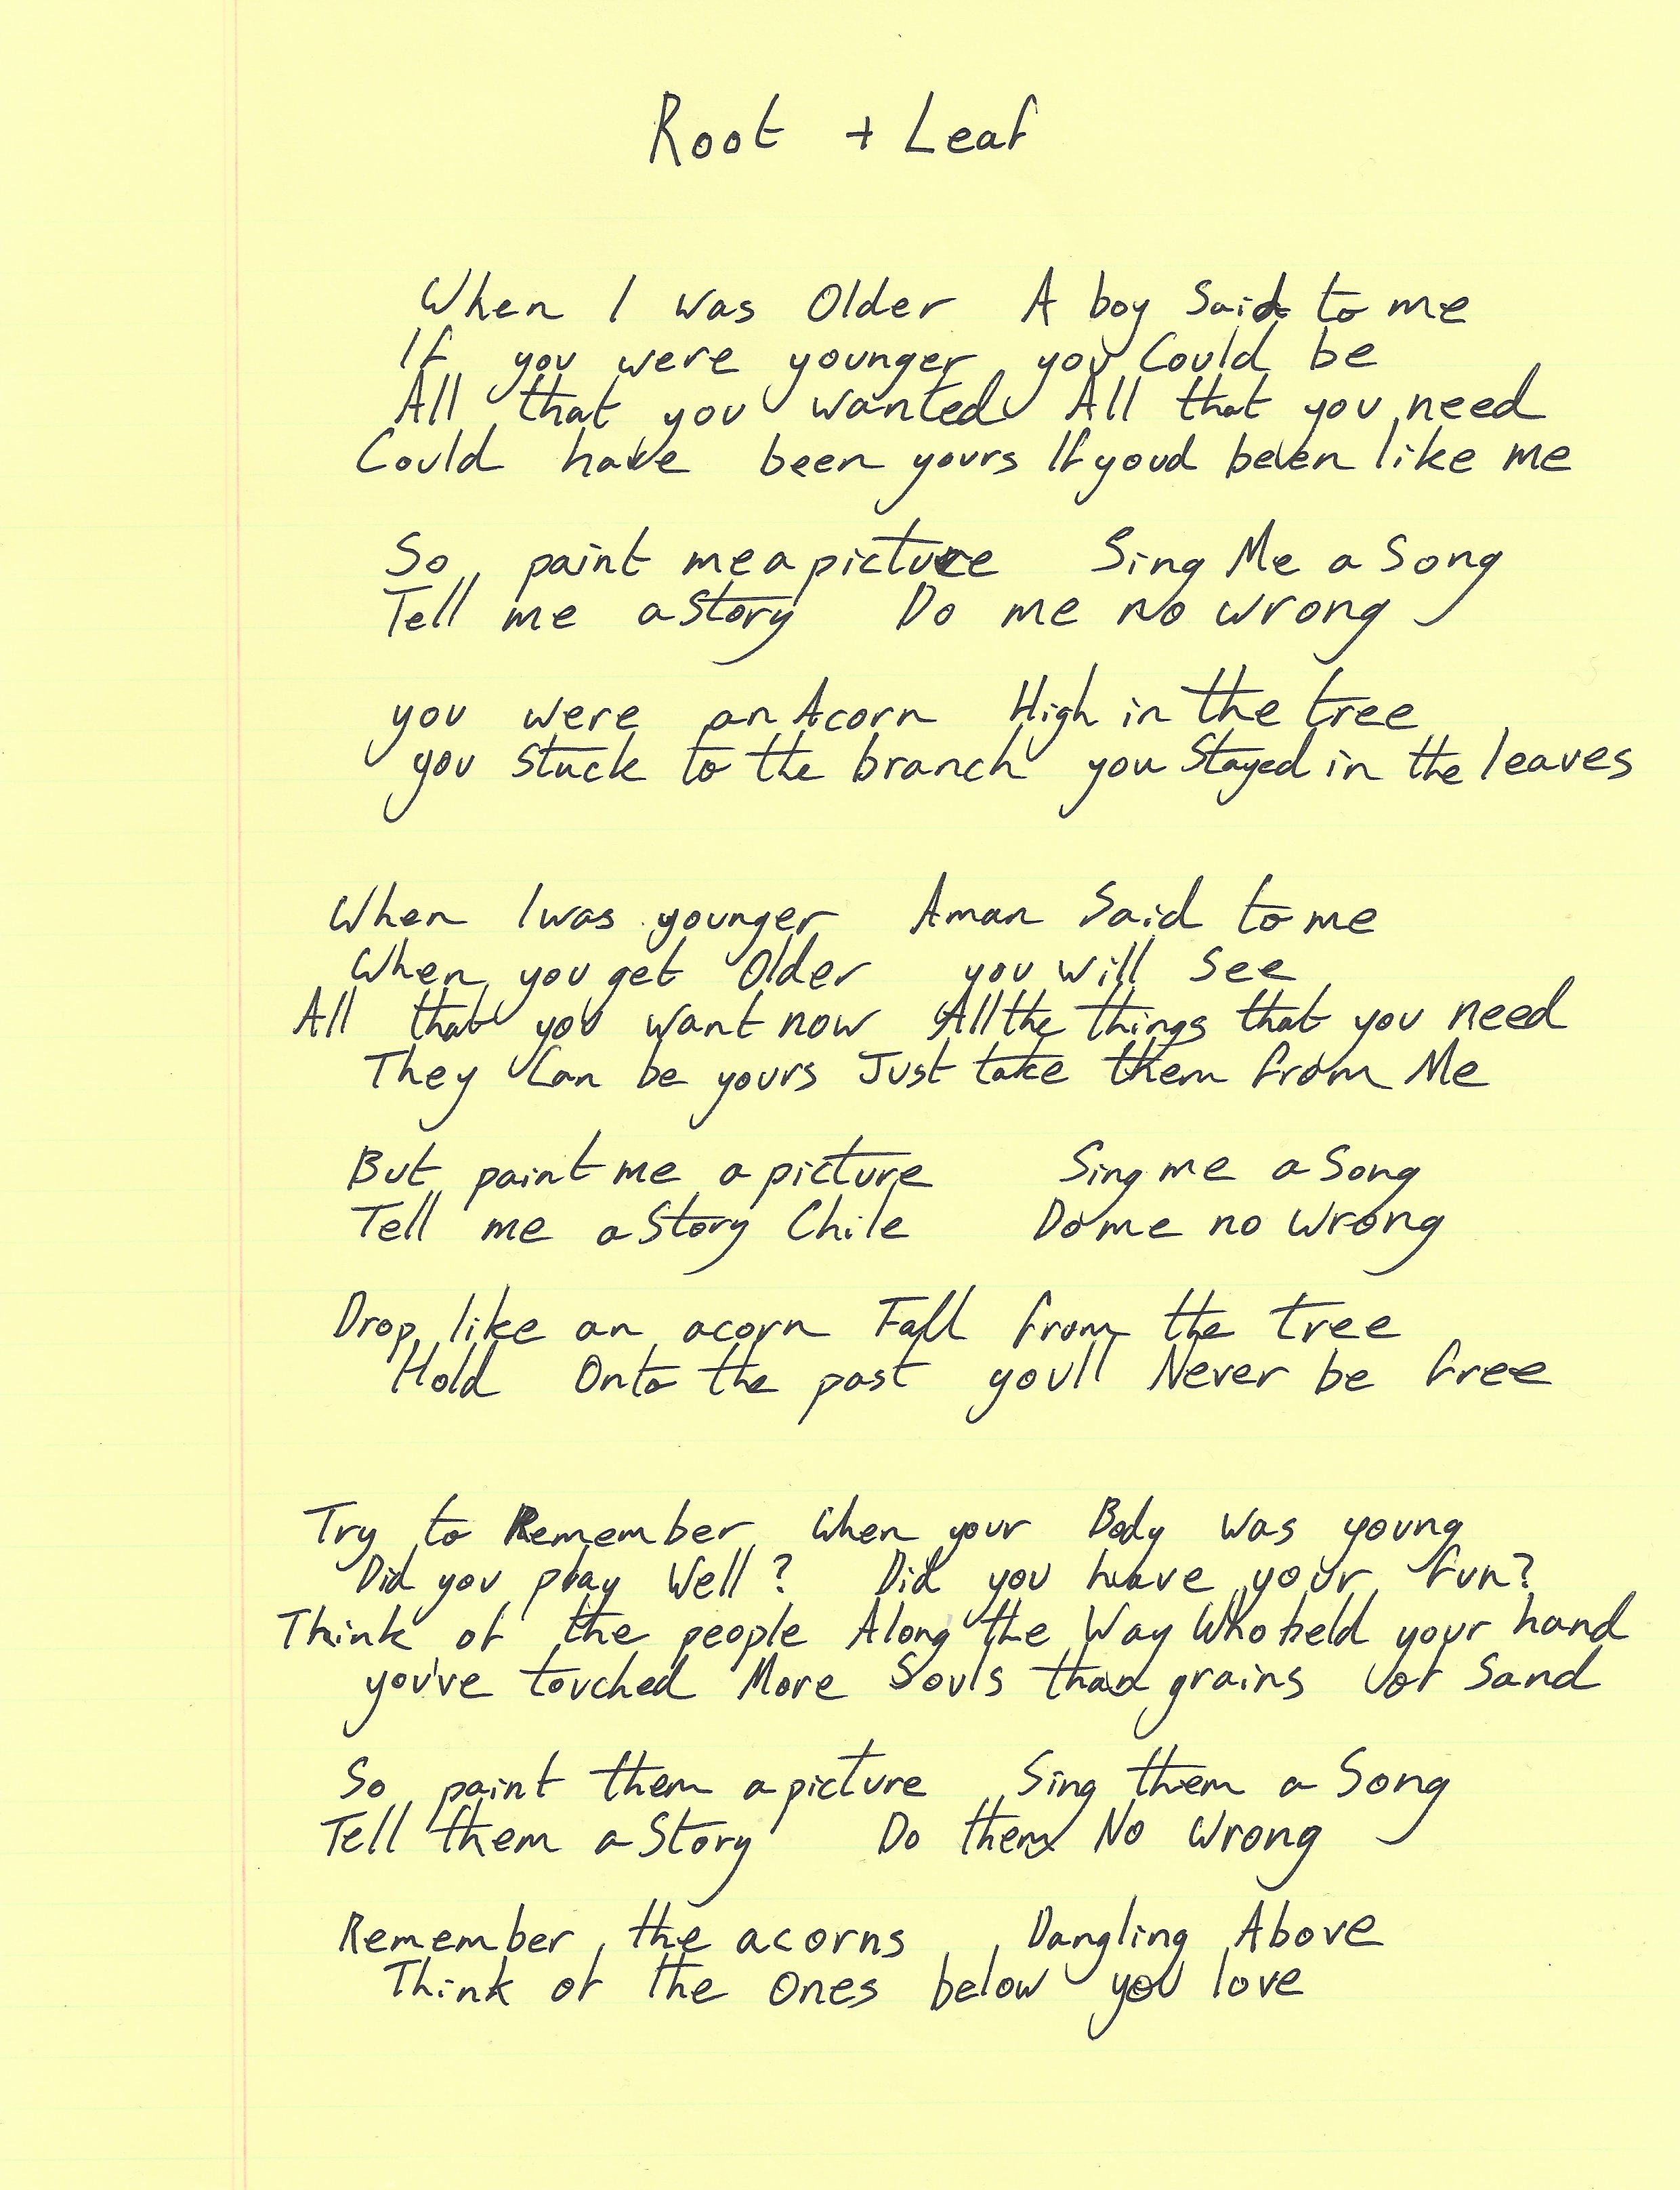 Root + Leaf
When I was Older A boy Said to me
If you were younger you Could be
All that you wanted All that you need
Could have been yours If youd been like me
So paint me a picture Sing Me a Song
Tell me a Story Do me no wrong
you were an Acorn High in the tree
you Stuck to the branch you Stayed in the leaves
When I was younger A man Said to me
When you get Older you will See
All that you want now All the things that you need
They Can be yours Just take them from Me
But paint me a picture Sing me a Song
Tell me a Story Chile Do me no Wrong
Drop like an acorn Fall from the tree
Hold Onto the past youll Never be free
Try to Remember When your Body Was young
Did you play Well? Did you have your fun?
Think of the people Along the Way Who held your hand
you've touched More Souls than grains of Sand
So paint them a picture Sing them a Song
Tell them a Story Do them No Wrong
Remember the acorns Dangling Above
Think of the Ones below you love